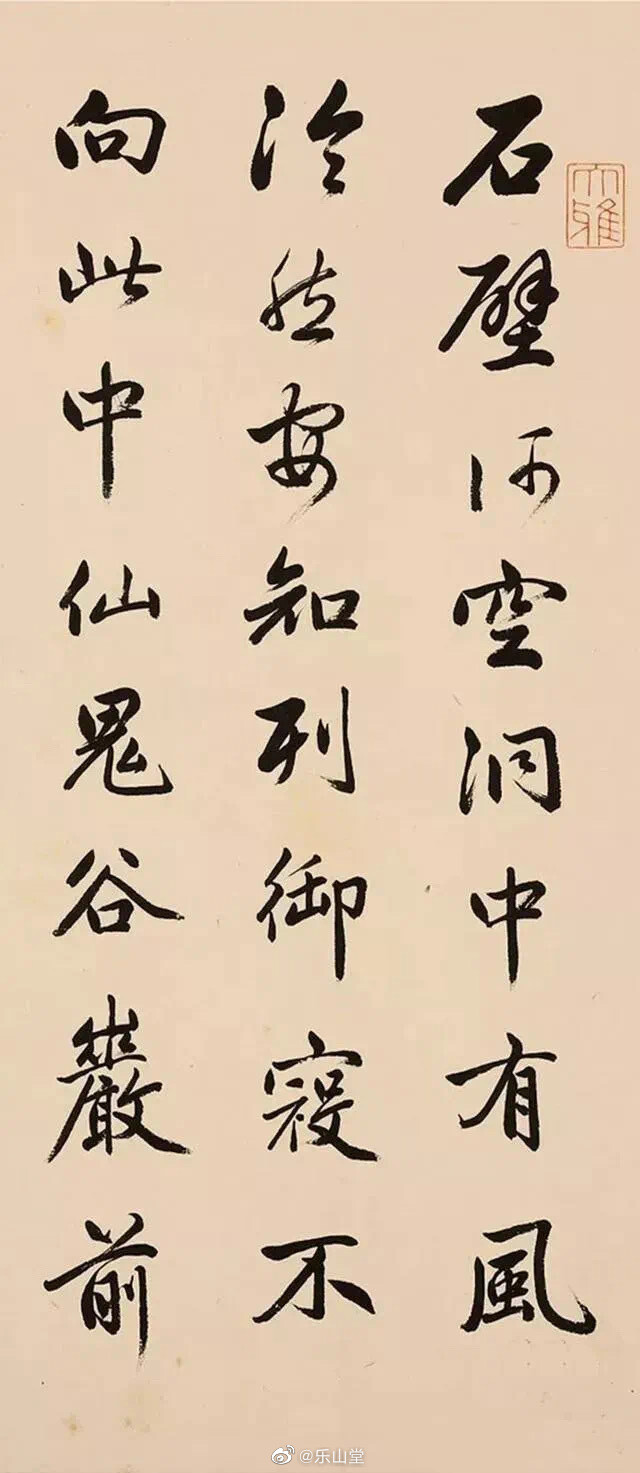 石壁何空洞中有風
泠然安知列御寇不
向此中仙鬼谷巖前
大雅
@乐山堂